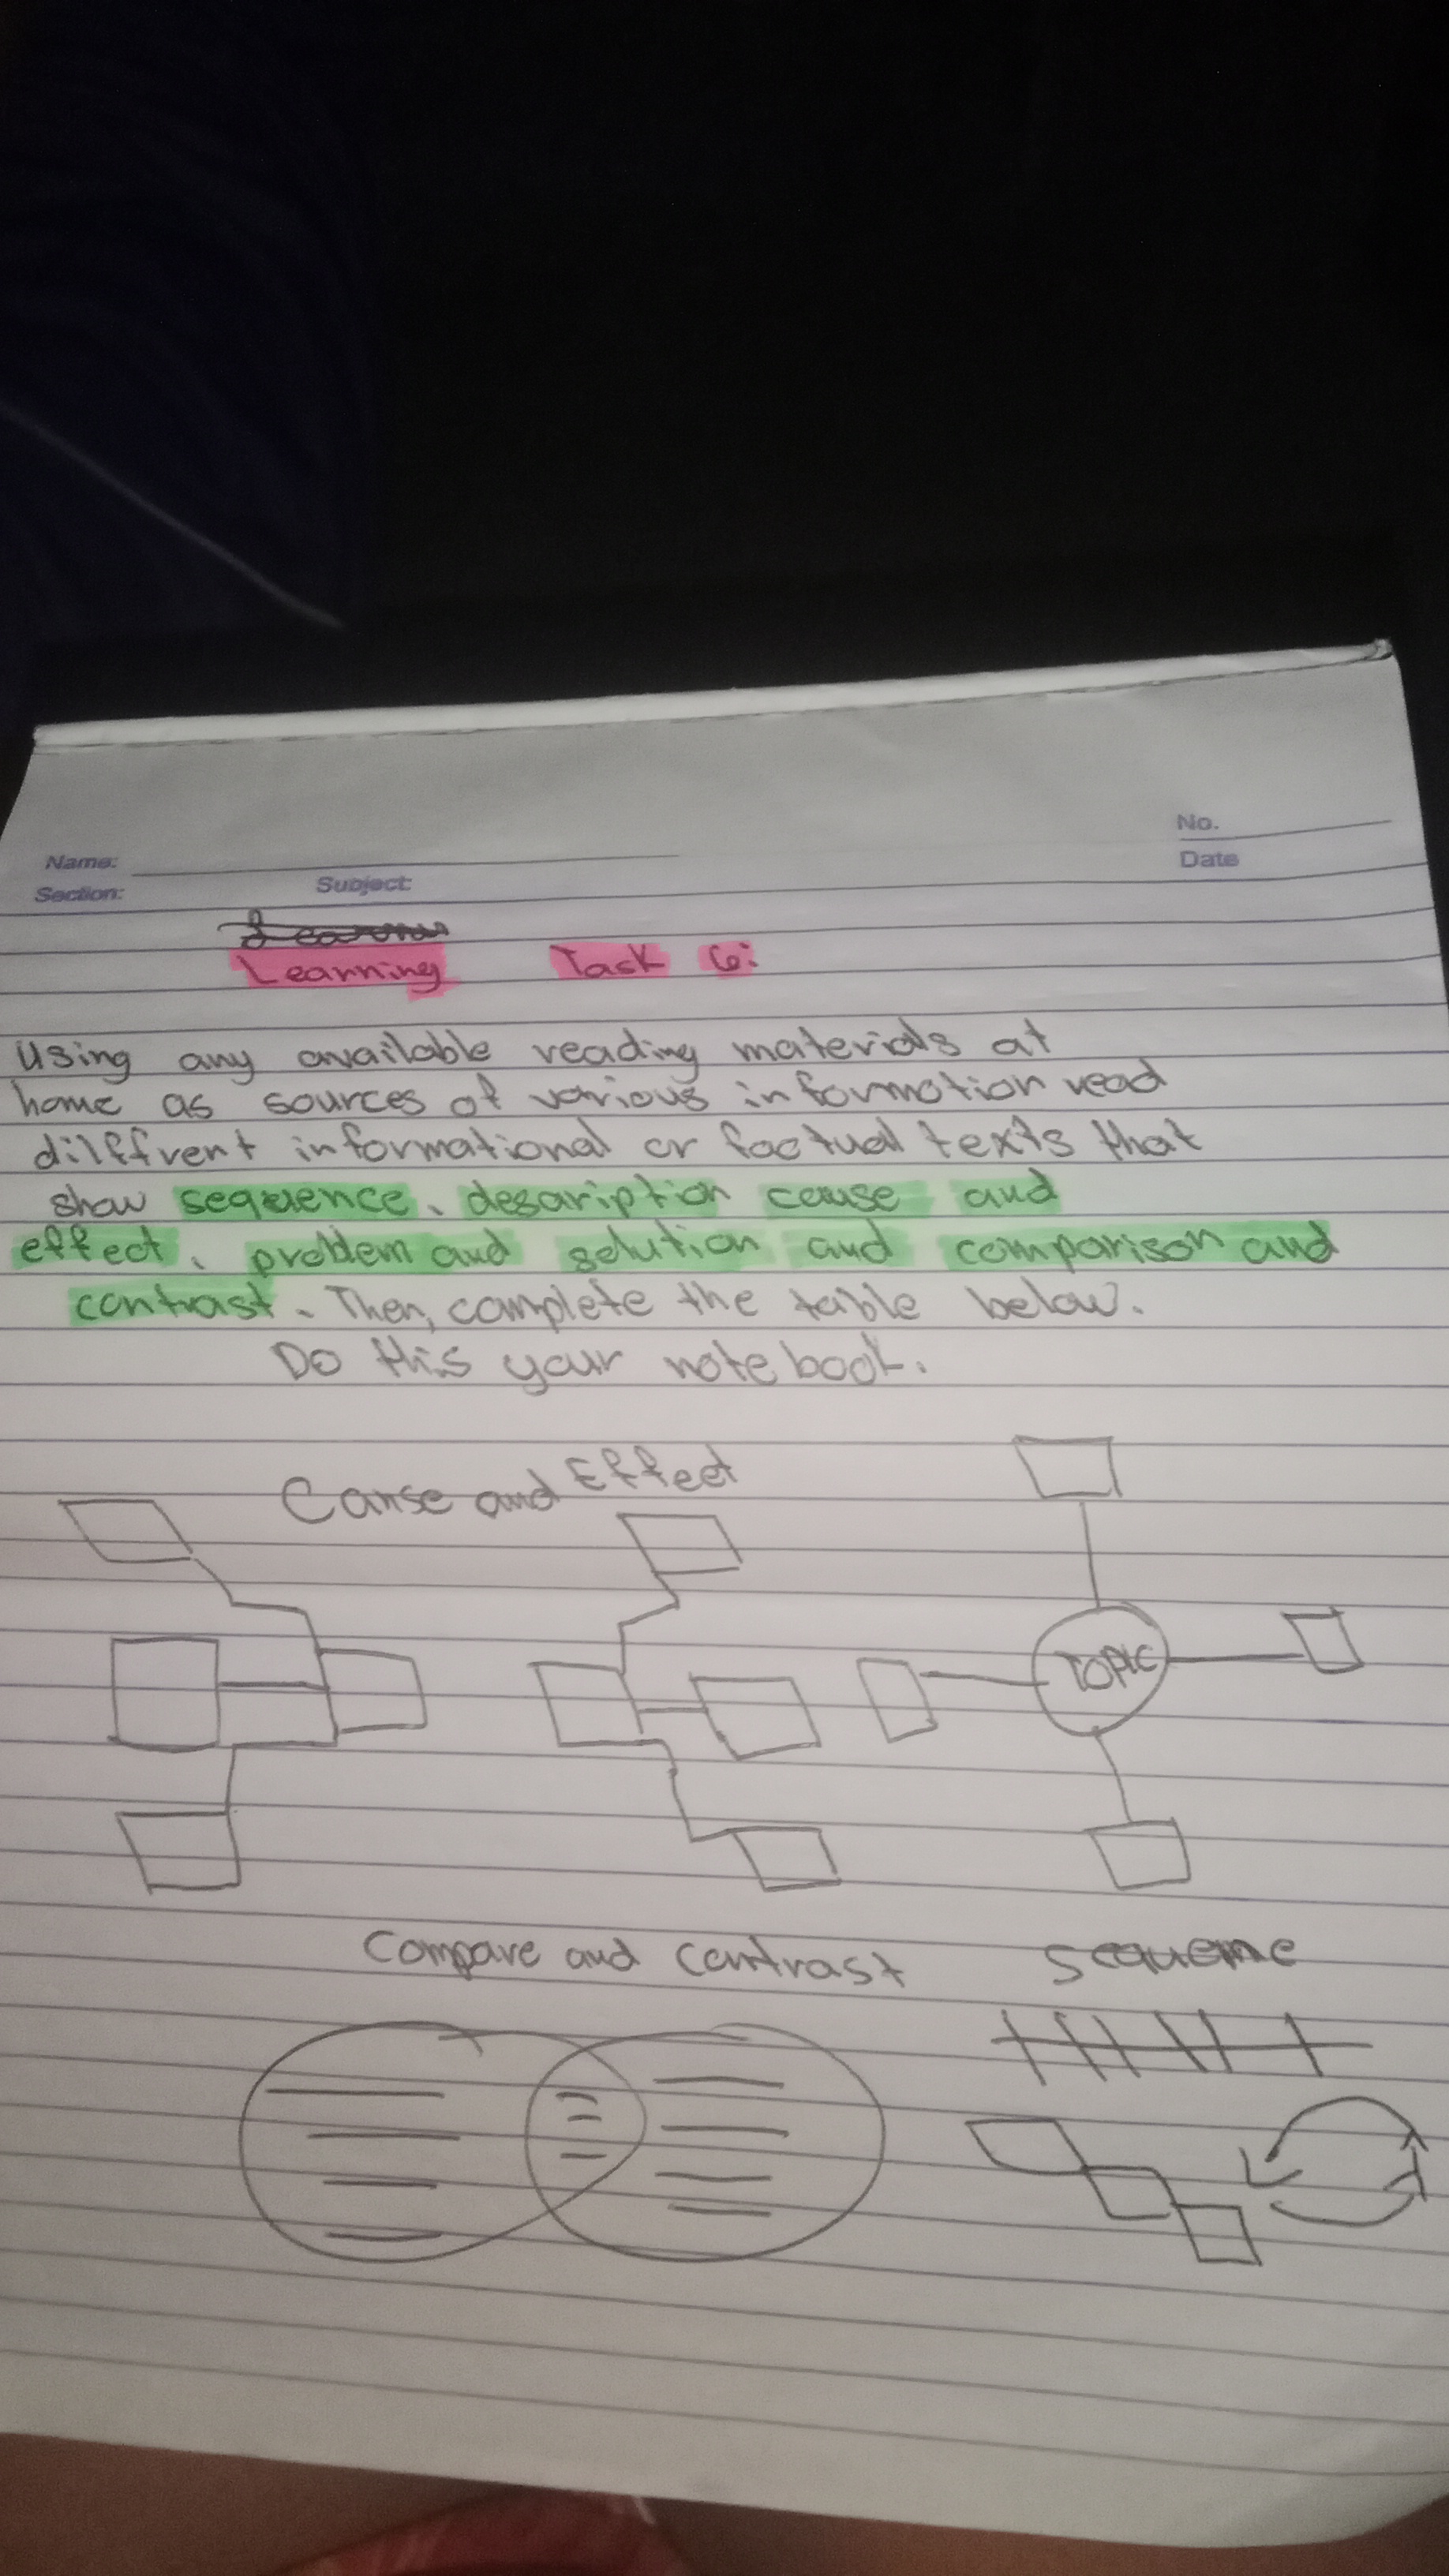 No.
Name:
Date
Section: Subject:
Learning Task 6:
Using any available reading materials at
home as sources of various information read
dilffrent informational or factual texts that
show sequence, desaription cause and
effect, problem and solution and comparison and
contrast. Then, complete the table below.
Do this your notebook.
Cause and Effect
TOPIC
Compare and contrast
sequence